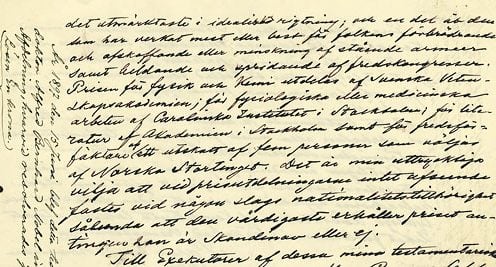 det utmärktaste i idealisk rigtning; och en del åt den
som har verkat mest eller best för folkens förbrödrande
och afskaffande eller minskning af stående armeer
samt bildande och spridande af fredskongresser.
Prisen för fysik och kemi utdelas af Svenska Veten-
skapsakademien; för fysiologiska eller medicinska
arbeten af Carolinska Institutet i Stockholm; för lite-
ratur af Akademien i Stockholm samt för fredsför-
fäktare af ett utskott af fem personer som väljas
af Norska Stortinget. Det är min uttryckliga
vilja att vid prisutdelningarne intet afseende
fästes vid någon slags nationalitetstillhörighet
sålunda att den värdigaste erhåller priset an-
tingen han är Skandinav eller ej.
Till Exekutorer af dessa mina testamentariska
År 1897 den 15 Juni blef detta
doktor Alfred Bernhard Nobel